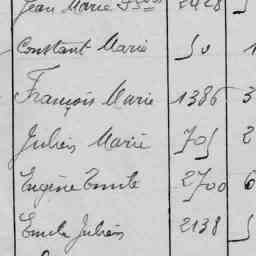 Jean Marie 2428 5
Constant Marie 50 1
François Marie 1386 3
Julien Marie 705 2
Eugène Emile 2700 6
Emile Julien 2138 5